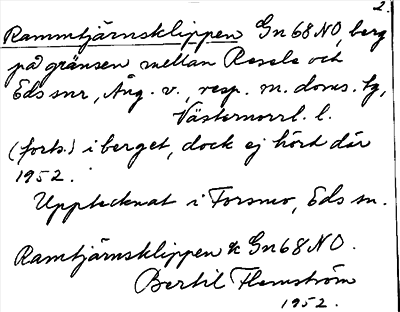 2.
Rammtjärnsklippen Gn 68 NO, berg
på gränsen mellan Resele och
Eds snr, Ång. v., resp. m. doms. tg,
Västernorrl. l.
(forts.) i berget, dock ej hört där
1952.
Upptecknat i Forsmo, Eds sn.
Ramtjärnsklippen k Gn 68 NO.
Bertil Flemström
1952.